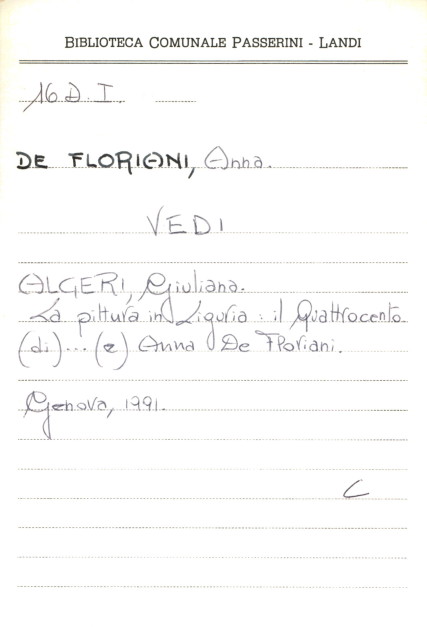 BIBLIOTECA COMUNALE PASSERINI - LANDI
16 D. I.
DE FLORIANI, Anna.
VEDI
ALGERI, Giuliana.
La pittura in Liguria : il Quattrocento
(di)... (e) Anna De Floriani.
Genova, 1991.
C